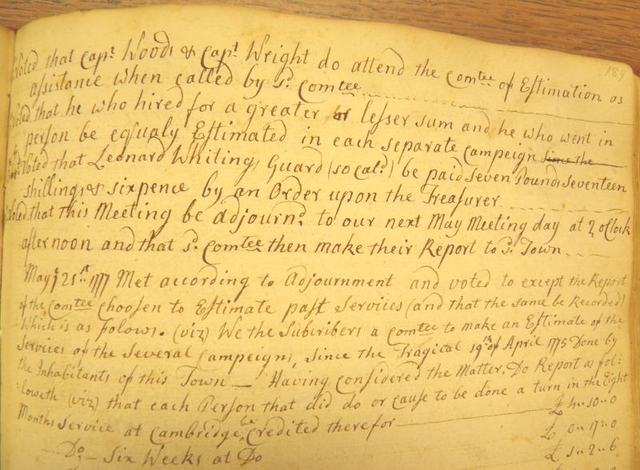 189
Voted that Capt Woods & Capt Wright do attend the Comtee of Estimation as
assistance when called by sd Comtee
Voted that he who hired for a greater or lesser sum and he who went in
person be equaly Estimated in each separate campeign since the
Voted that Leonard Whitings Guard (so cald) be paid seven Pounds seventeen
shillings & sixpence by an Order upon the Treasurer
Voted that this Meeting be adjournd to our next May Meeting day at 2 oClock
afternoon and that sd Comtee then make their Report to sd Town
May 21st 1777 Met according to Adjournment and voted to except the Report
of the Comtee Choosen to Estimate past Services (and that the same be Recorded)
Which is as folows. (viz) We the Subscribers a Comtee to make an Estimate of the
Services of the Several Campeigns, Since the Tragical 19th of April 1775 Done by
the Inhabitants of this Town — Having considered the Matter, Do Report as fol:
:loweth (viz) that each Person that did do or cause to be done a turn in the Eight
Months service at Cambridge be Credited therefor £ 4-10-0
Do - Six Weeks at Do £ 0-17-0
£ 1-2-6